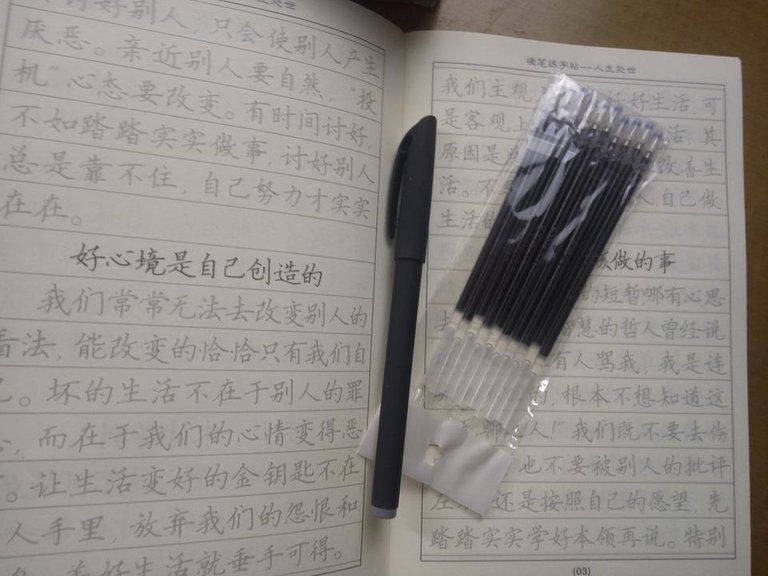 讨好别人,只会使别人产生
厌恶。亲近别人要自然,“投
机”心态要改变。有时间讨好
不如踏踏实实做事,讨好别人
总是靠不住,自己努力才实实
在在。
好心境是自己创造的
我们常常无法去改变别人的
看法,能改变的恰恰只有我们自
己。坏的生活不在于别人的罪
,而在于我们的心情变得恶
。让生活变好的金钥匙不在
人手里,放弃我们的怨恨和
美好生活就垂手可得。
硬笔练字帖--人生处世
我们主观 好生活,可
是客观上 活,其
原因是 改善生
活。不 人自己做
生活的
该做的事
的短暂哪有心思
去 智慧的哲人曾经说
有人骂我,我是连
,根本不想知道这
聊 人!”我们既不要去伤
也不要被别人的批评
左 还是按照自己的愿望,先
踏踏实实学好本领再说。特别
(03)